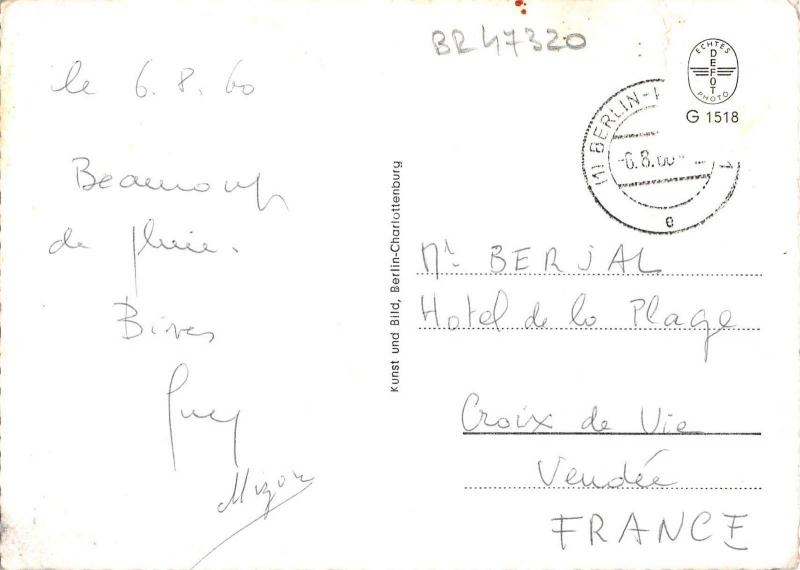 BR 47320
ECHTES
DEFOT
PHOTO
G 1518
(1) BERLIN-
-6.8.60
e
le 6.8.60
Beaucoup
de pluie.
Bises
Guy
Kunst und Bild, Berlin-Charlottenburg
Mr BERJAL
Hotel de la Plage
Croix de Vie
Vendée
FRANCE